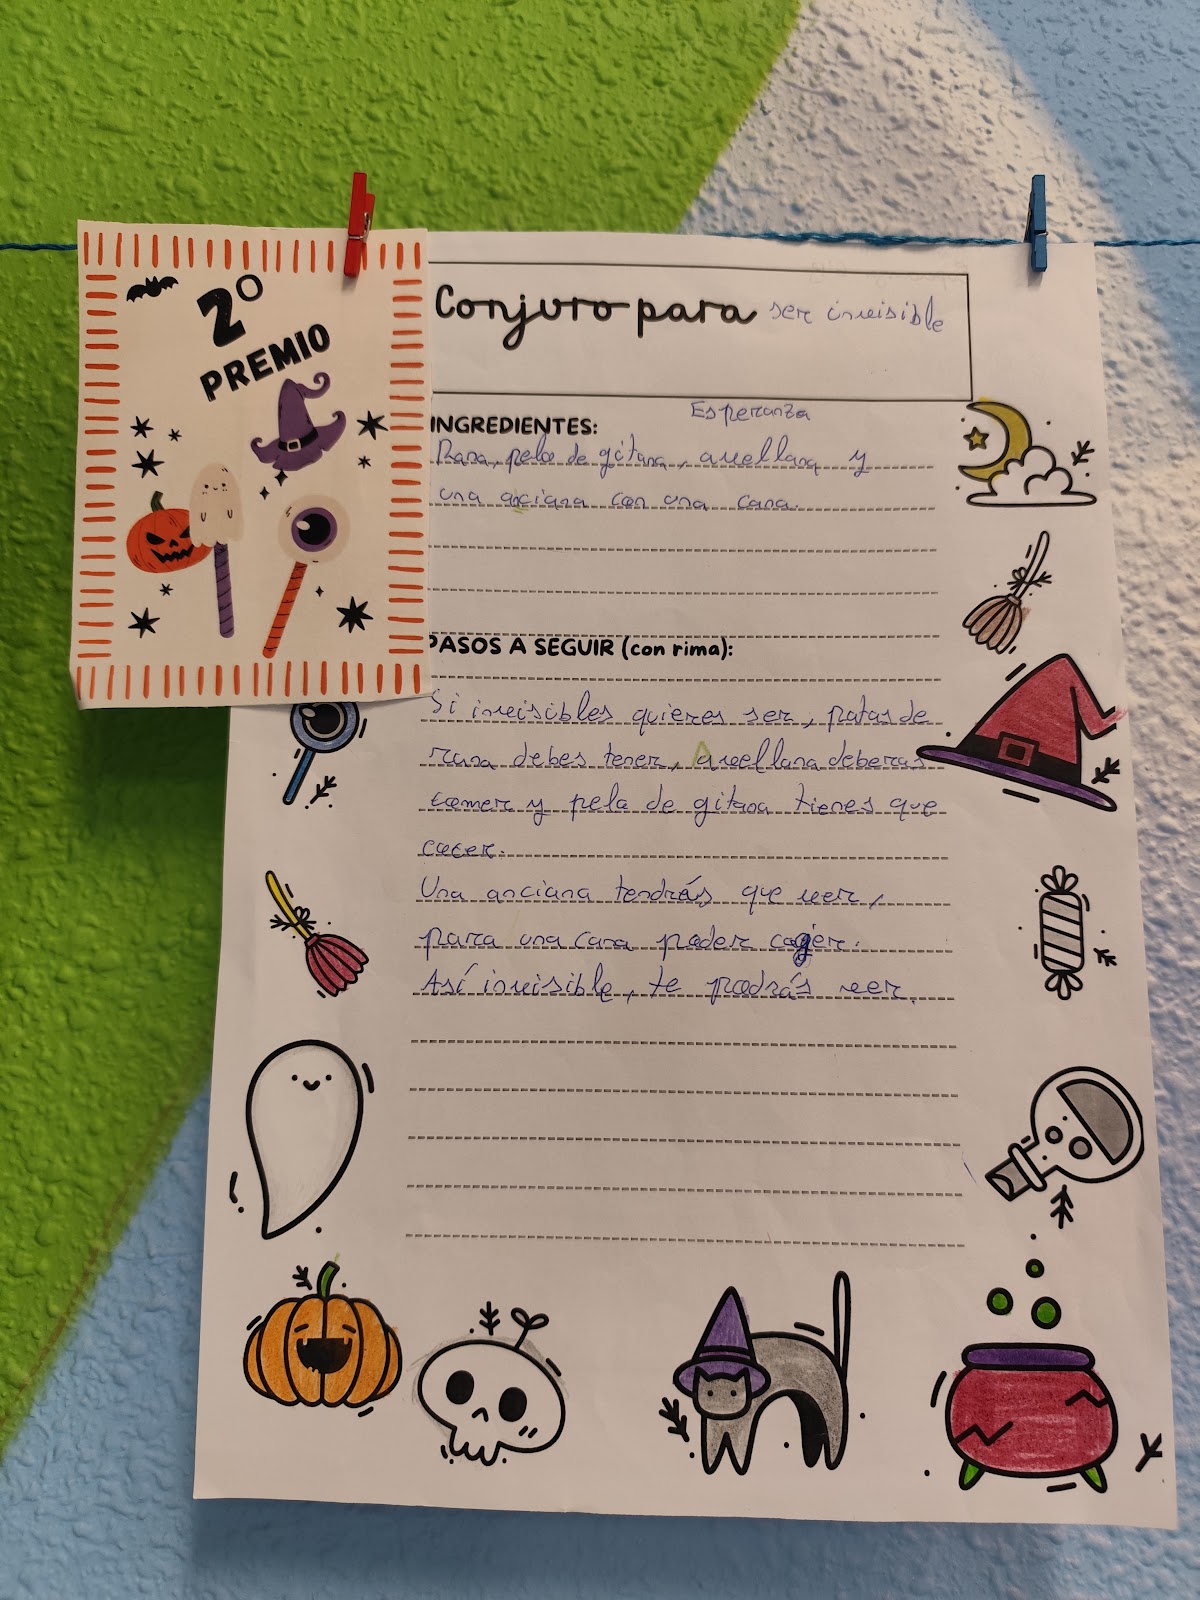 2º
PREMIO
Conjuro para ser invisible
Esperanza
INGREDIENTES:
Rana, pelo de gitana, avellana y
una anciana con una cana.
PASOS A SEGUIR (con rima):
Si invisibles quieres ser, patas de
rana debes tener, Avellana deberás
comer y pelo de gitana tienes que
cocer.
Una anciana tendrás que ver,
para una cana poder coger.
Así invisible, te podrás ver.